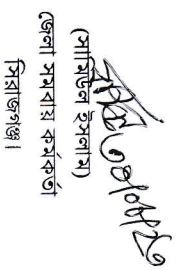 (সামিউল ইসলাম)
জেলা সমবায় কর্মকর্তা
সিরাজগঞ্জ।